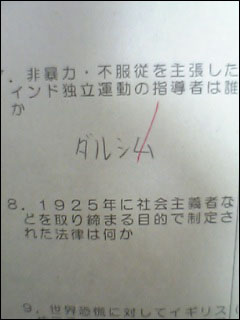 7. 非暴力・不服従を主張した
インド独立運動の指導者は誰
か
ダルシム
8. 1925年に社会主義者な
どを取り締まる目的で制定さ
れた法律は何か
9. 世界恐慌に対してイギリス